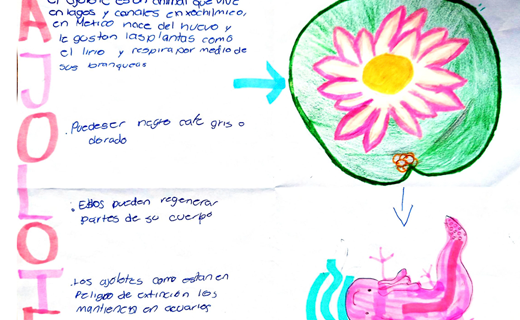 AJOLOT
El ajolote es un animal que vive
en lagos y canales en xochimilco,
en Mexico nace del huevo y
le gustan las plantas como
el lirio y respira por medio de
sus branqueas
.Puede ser negro café gris o
dorado
.Ellos pueden regenerar
partes de su cuerpo
.Los ajolotes como estan en
peligro de extinción los
mantienen en acuarios